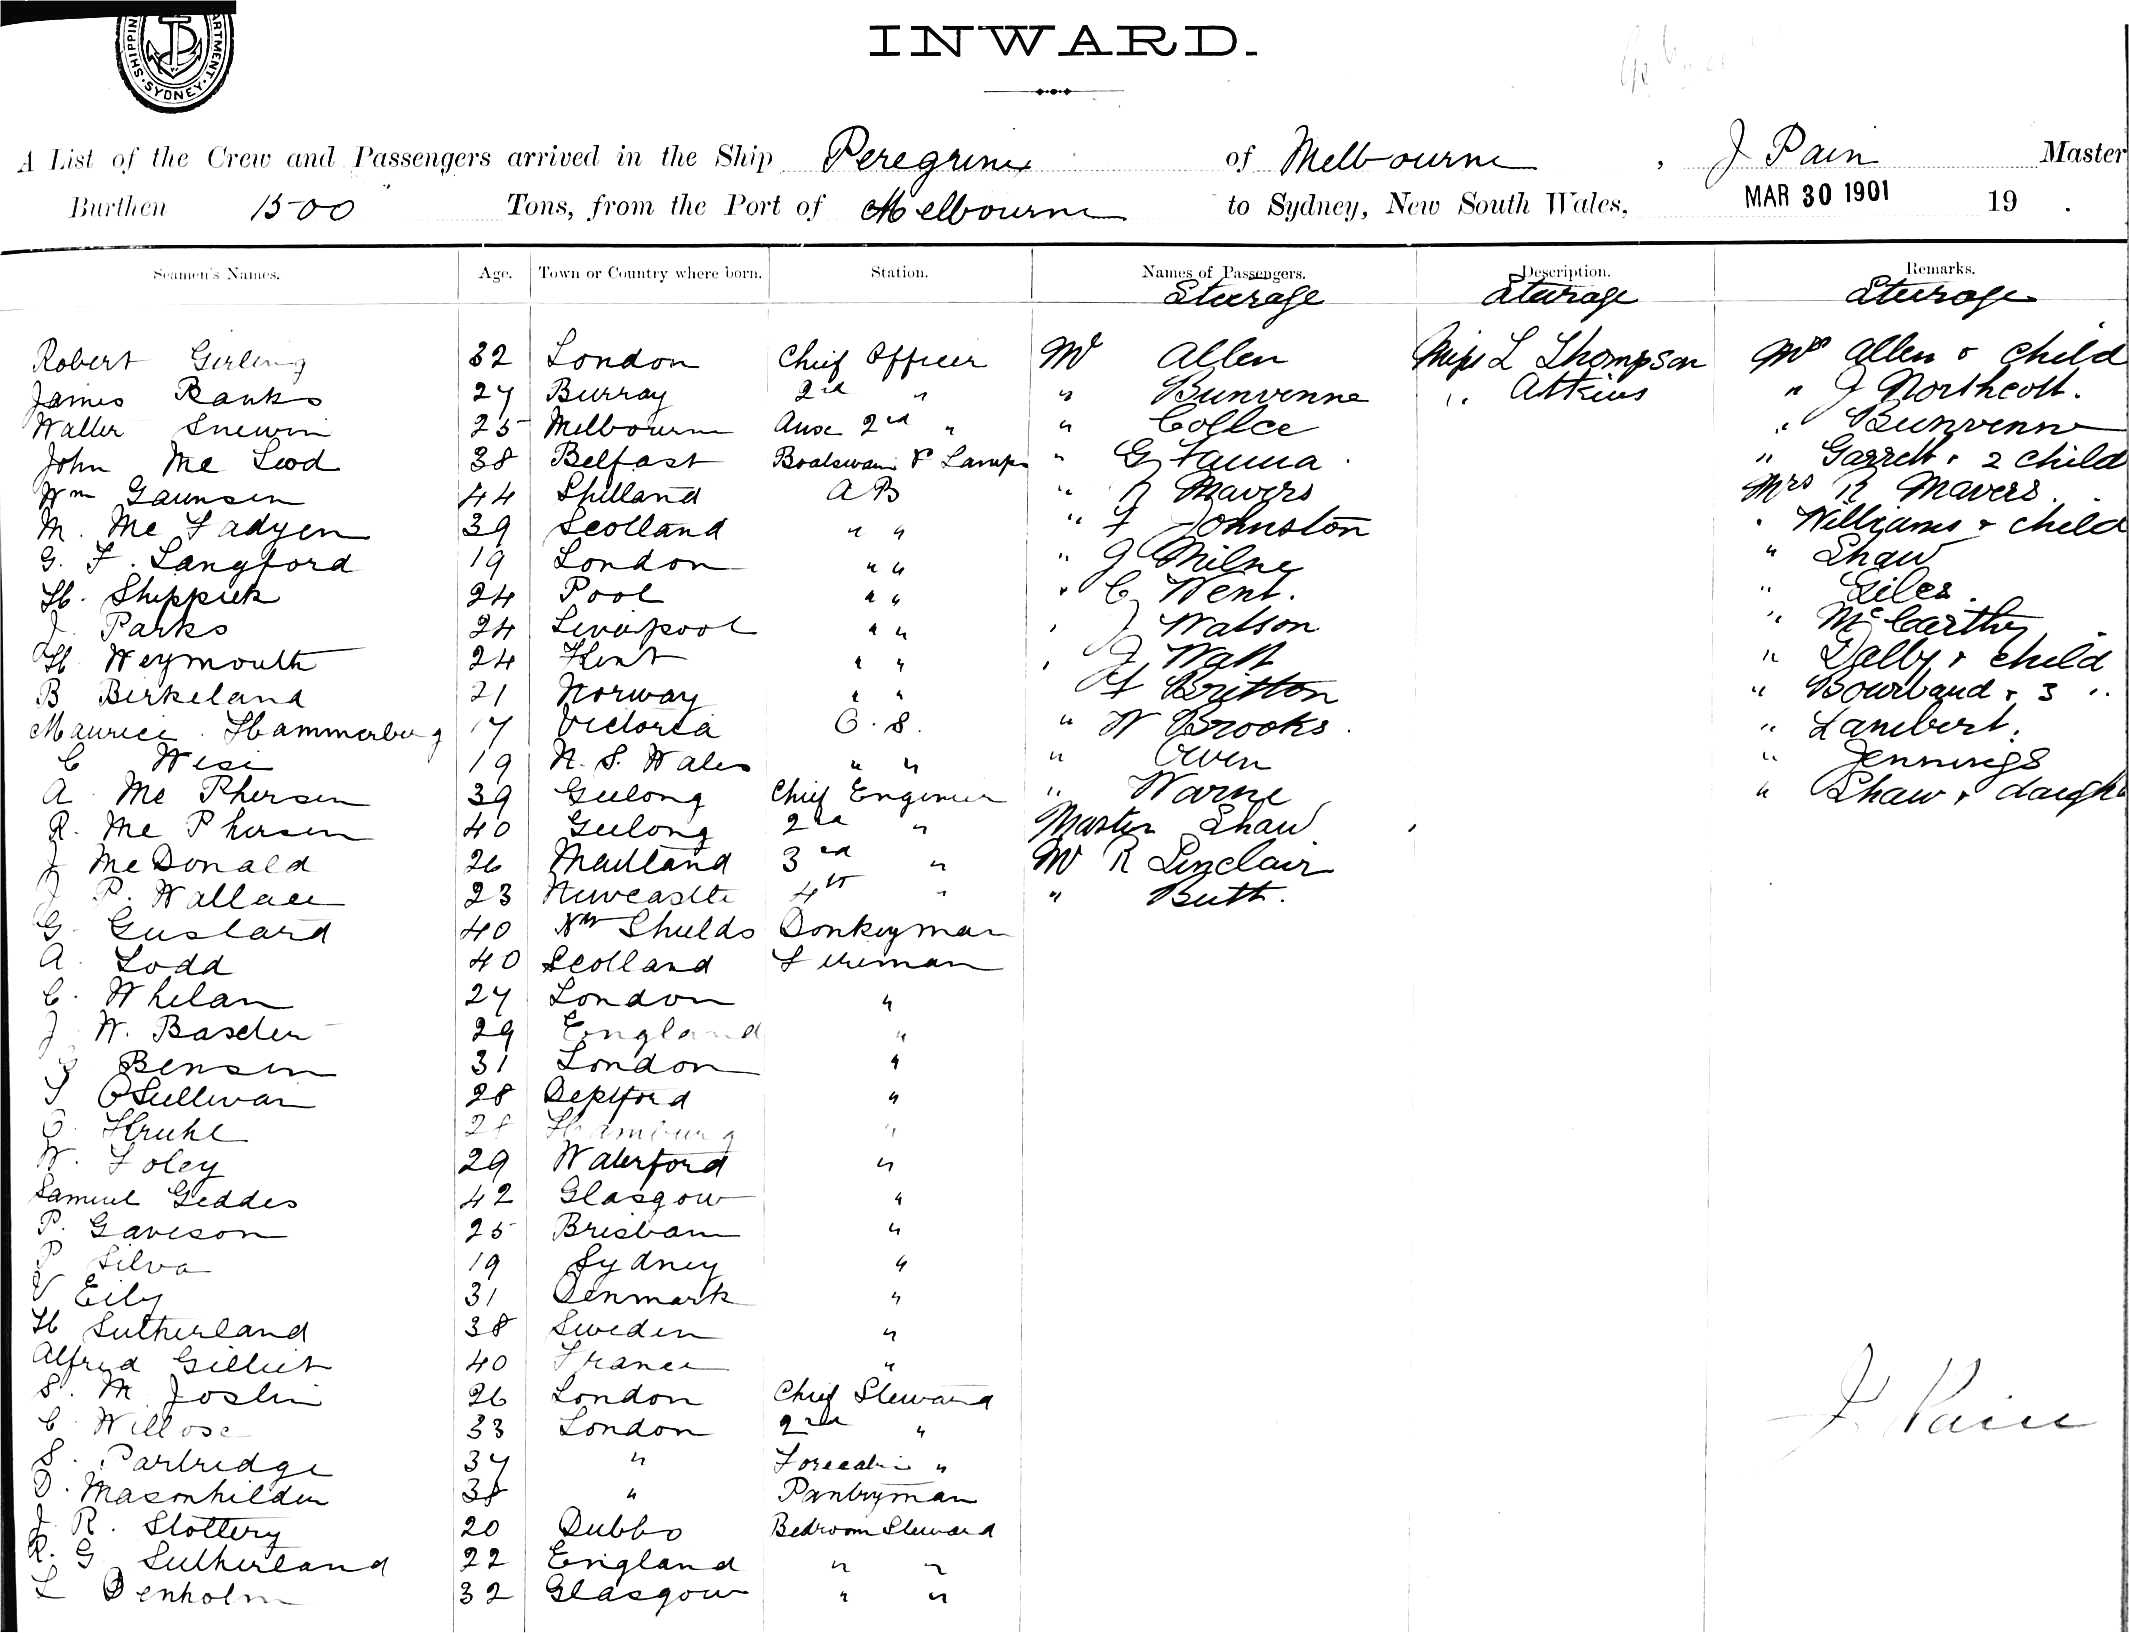 SHIPPING DEPARTMENT. SYDNEY.
INWARD.
A List of the Crew and Passengers arrived in the Ship Peregrine of Melbourne, J Pain Master
Burthen 1500 Tons, from the Port of Melbourne to Sydney, New South Wales, MAR 30 1901 19 .
Seamen's Names. Age. Town or Country where born. Station. Names of Passengers. Description. Remarks.
Steerage Steerage Steerage
Robert Girling 32 London Chief Officer Mr Allen Miss L Thompson Mrs Allen & Child
James Banks 27 Burray 2nd " " Bunvenne " Atkins " J Northcott.
Walter Snewin 25 Melbourne Ause 2nd " " Collce " Bunvenne
John Mc Leod 38 Belfast Boatswain & Lamps " G Fauna. " Garrett & 2 Child
Wm Gaunsen 44 Shetland A B " R Mavers Mrs R Mavers.
M. Mc Fadyen 39 Scotland " " " F Johnston " Williams & Child
G. F. Langford 19 London " " " J Milne " Shaw
H. Shippick 24 Pool " " " C Went. " Giles.
J. Parks 24 Liverpool " " " J Watson " McCarthy
H Weymouth 24 Kent " " " J Watt " Dalby & child
B Birkeland 21 Norway " " H Britton " Bourbaud & 3 "
Maurice Hammerberg 17 Victoria O.S. " W Brooks. " Lambert.
C Wise 19 N. S. Wales " " " Owen " Jennings
A Mc Pherson 39 Geelong Chief Engineer " Warne " Shaw & daugh
R. Mc Pherson 40 Geelong 2nd " Master Shaw
J McDonald 26 Maitland 3rd " Mr R Sinclair
J P. Wallace 23 Newcastle 4th " " Butt.
G. Gustard 40 Nth Shields Donkeyman
A. Todd 40 Scotland Fireman
C. Whelan 27 London "
J W. Baseden 29 England "
Benson 31 London "
J O'Sullivan 28 Deptford "
Kruhl 28 Hamburg "
W. Foley 29 Waterford "
Samuel Geddes 42 Glasgow "
P. Gaveson 25 Brisbane "
P Silva 19 Sydney "
V Eily 31 Denmark "
H Sutherland 38 Sweden "
Alfred Gilliet 40 France "
S. M Joslin 26 London Chief Steward
C. Willose 33 London 2nd "
S. Partridge 37 " Forecabin "
D. Masonhilden 38 " Pantryman
J R. Slottery 20 Dubbo Bedroom Steward
R. G Sutherland 22 England " "
L Denholm 32 Glasgow " "
J. Pain